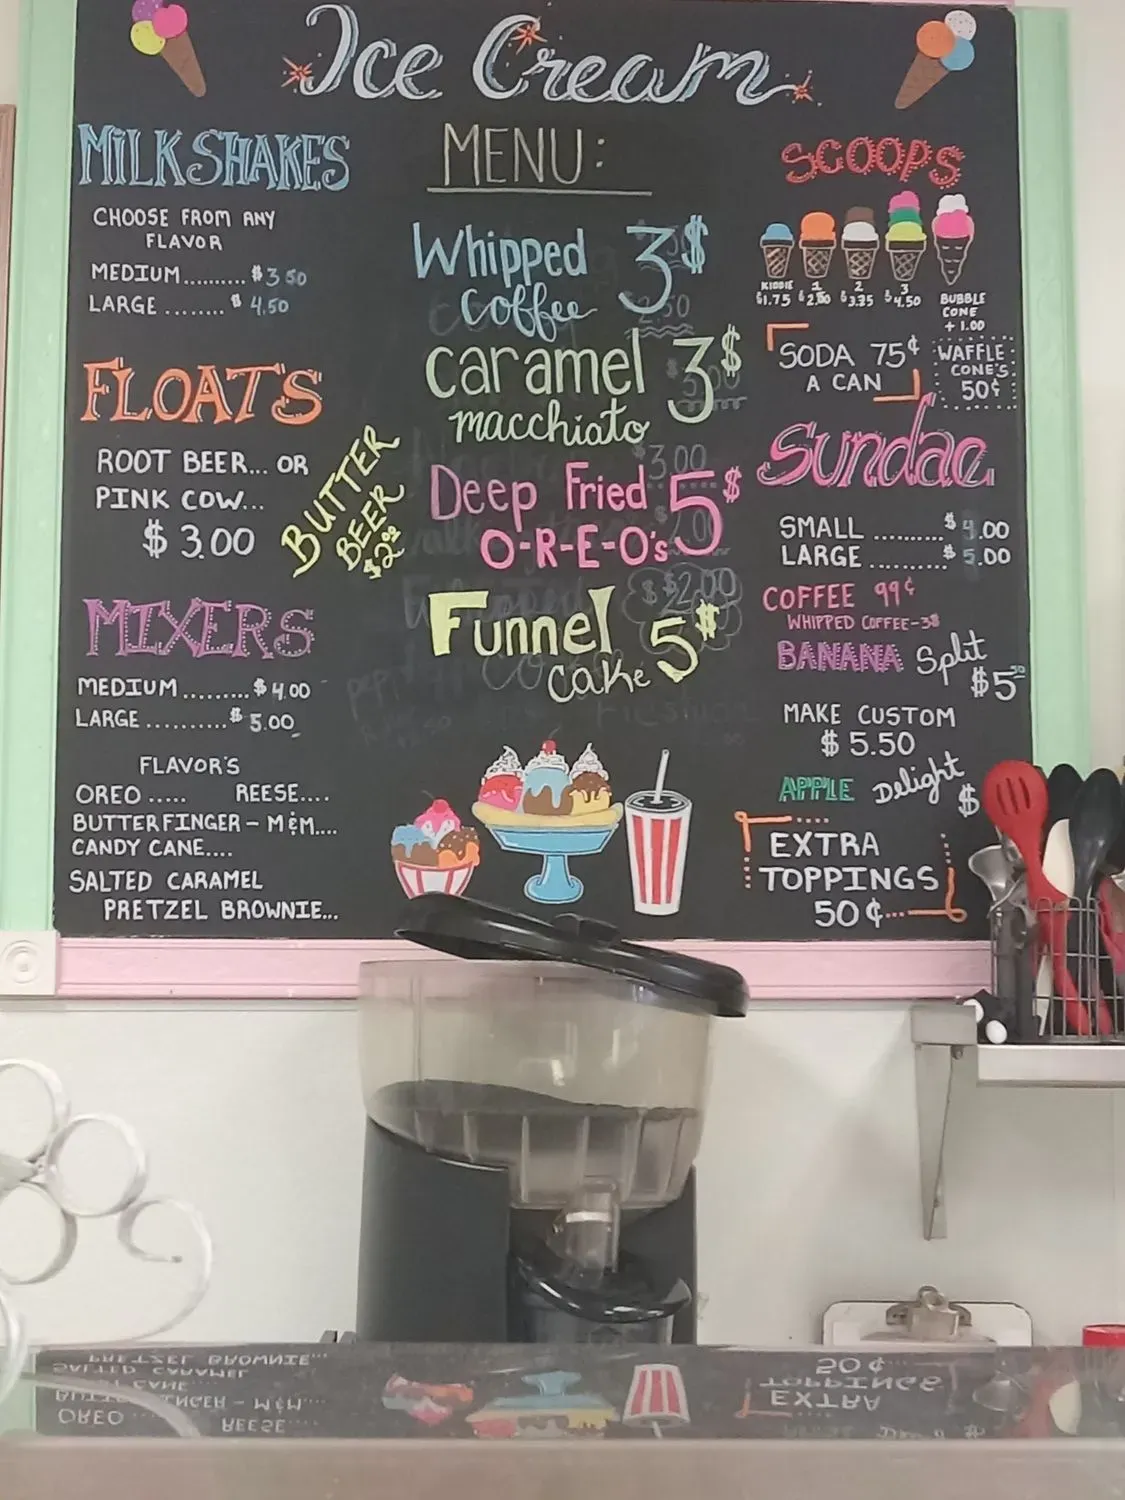 Ice Cream
MENU:
MILKSHAKES
CHOOSE FROM ANY
FLAVOR
MEDIUM.......... $3.50
LARGE ........ $4.50
FLOATS
ROOT BEER... OR
PINK COW...
$3.00
BUTTER
BEER
MIXERS
MEDIUM......... $4.00
LARGE .......... $5.00
FLAVOR'S
OREO ..... REESE....
BUTTERFINGER - M&M....
CANDY CANE....
SALTED CARAMEL
PRETZEL BROWNIE...
Whipped 3$
Coffee
caramel 3$
macchiato
Deep Fried 5$
O-R-E-O's
Funnel 5$
Cake
SCOOPS
KIDDIE 1 2 3
$1.75 $3.35 $4.50
BUBBLE
CONE
+ 1.00
SODA 75¢
A CAN
WAFFLE
CONE'S
50¢
Sundae
SMALL .......... $4.00
LARGE .......... $5.00
COFFEE 99¢
WHIPPED COFFEE-3$
BANANA Split
MAKE CUSTOM
$5.50
APPLE Delight
$
EXTRA
TOPPINGS
50¢